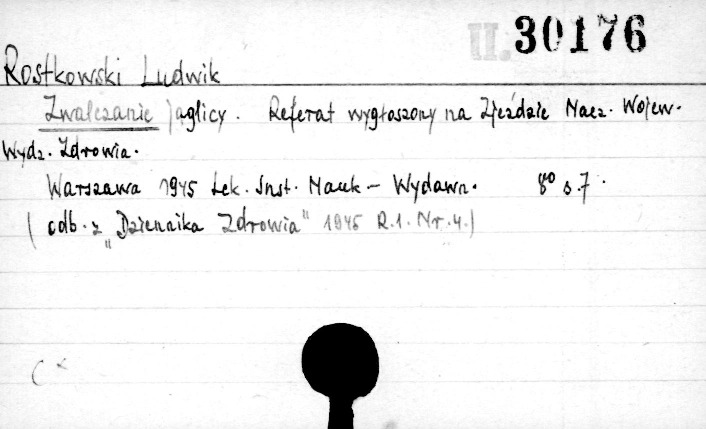 II. 30176
Rostkowski Ludwik
Zwalczanie jaglicy. Referat wygłoszony na Zjeździe Nacz. Wojew.
Wydz. Zdrowia.
Warszawa 1945 Lek. Inst. Nauk - Wydawn. 8° s. 7.
(odb. z „Dziennika Zdrowia" 1945 R.1. Nr. 4.)